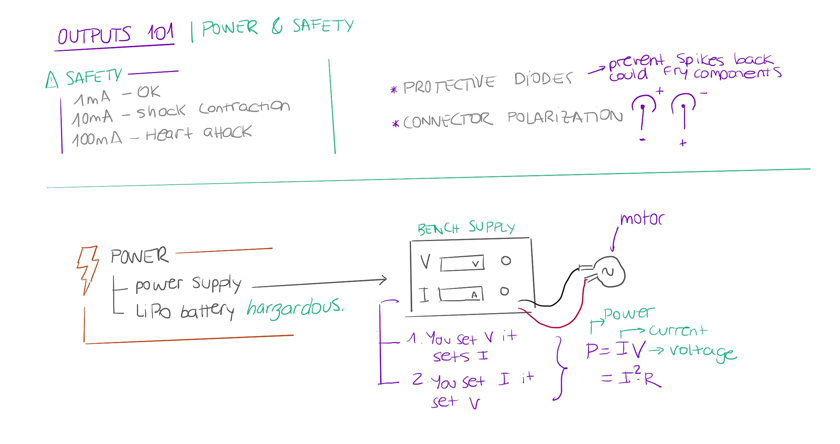 OUTPUTS 101 | POWER & SAFETY
⚠ SAFETY
1mA - OK
10mA - shock contraction
100mA - Heart attack
* PROTECTIVE DIODES → prevent spikes back
could fry components
* CONNECTOR POLARIZATION
+ -
- +
POWER
power supply
LiPo battery hargardous.
BENCH SUPPLY
V V
I A
motor
~
1. You set V it
sets I
2. You set I it
set V
Power
current
P = IV → voltage
= I²·R